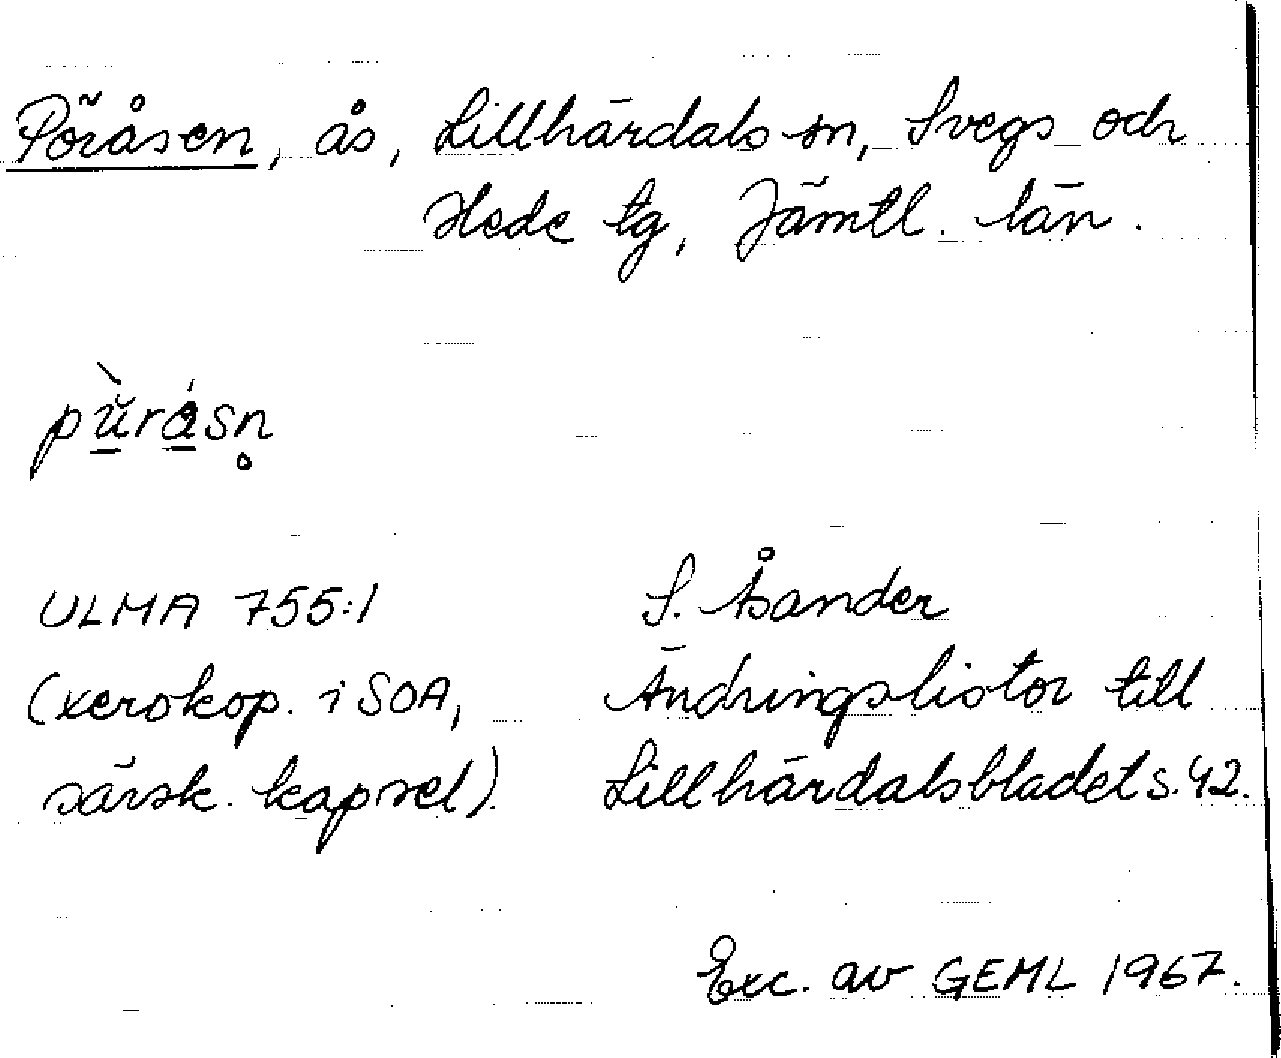 Pöråsen, ås, Lillhärdals sn, Svegs och
Hede tg, Jämtl. län.
pùråsn̥
ULMA 755:1
(xerokop. i SOA,
särsk. kapsel).
S. Åsander
Ändringslistor till
Lillhärdalsbladet s. 42.
Exc. av GEML 1967.